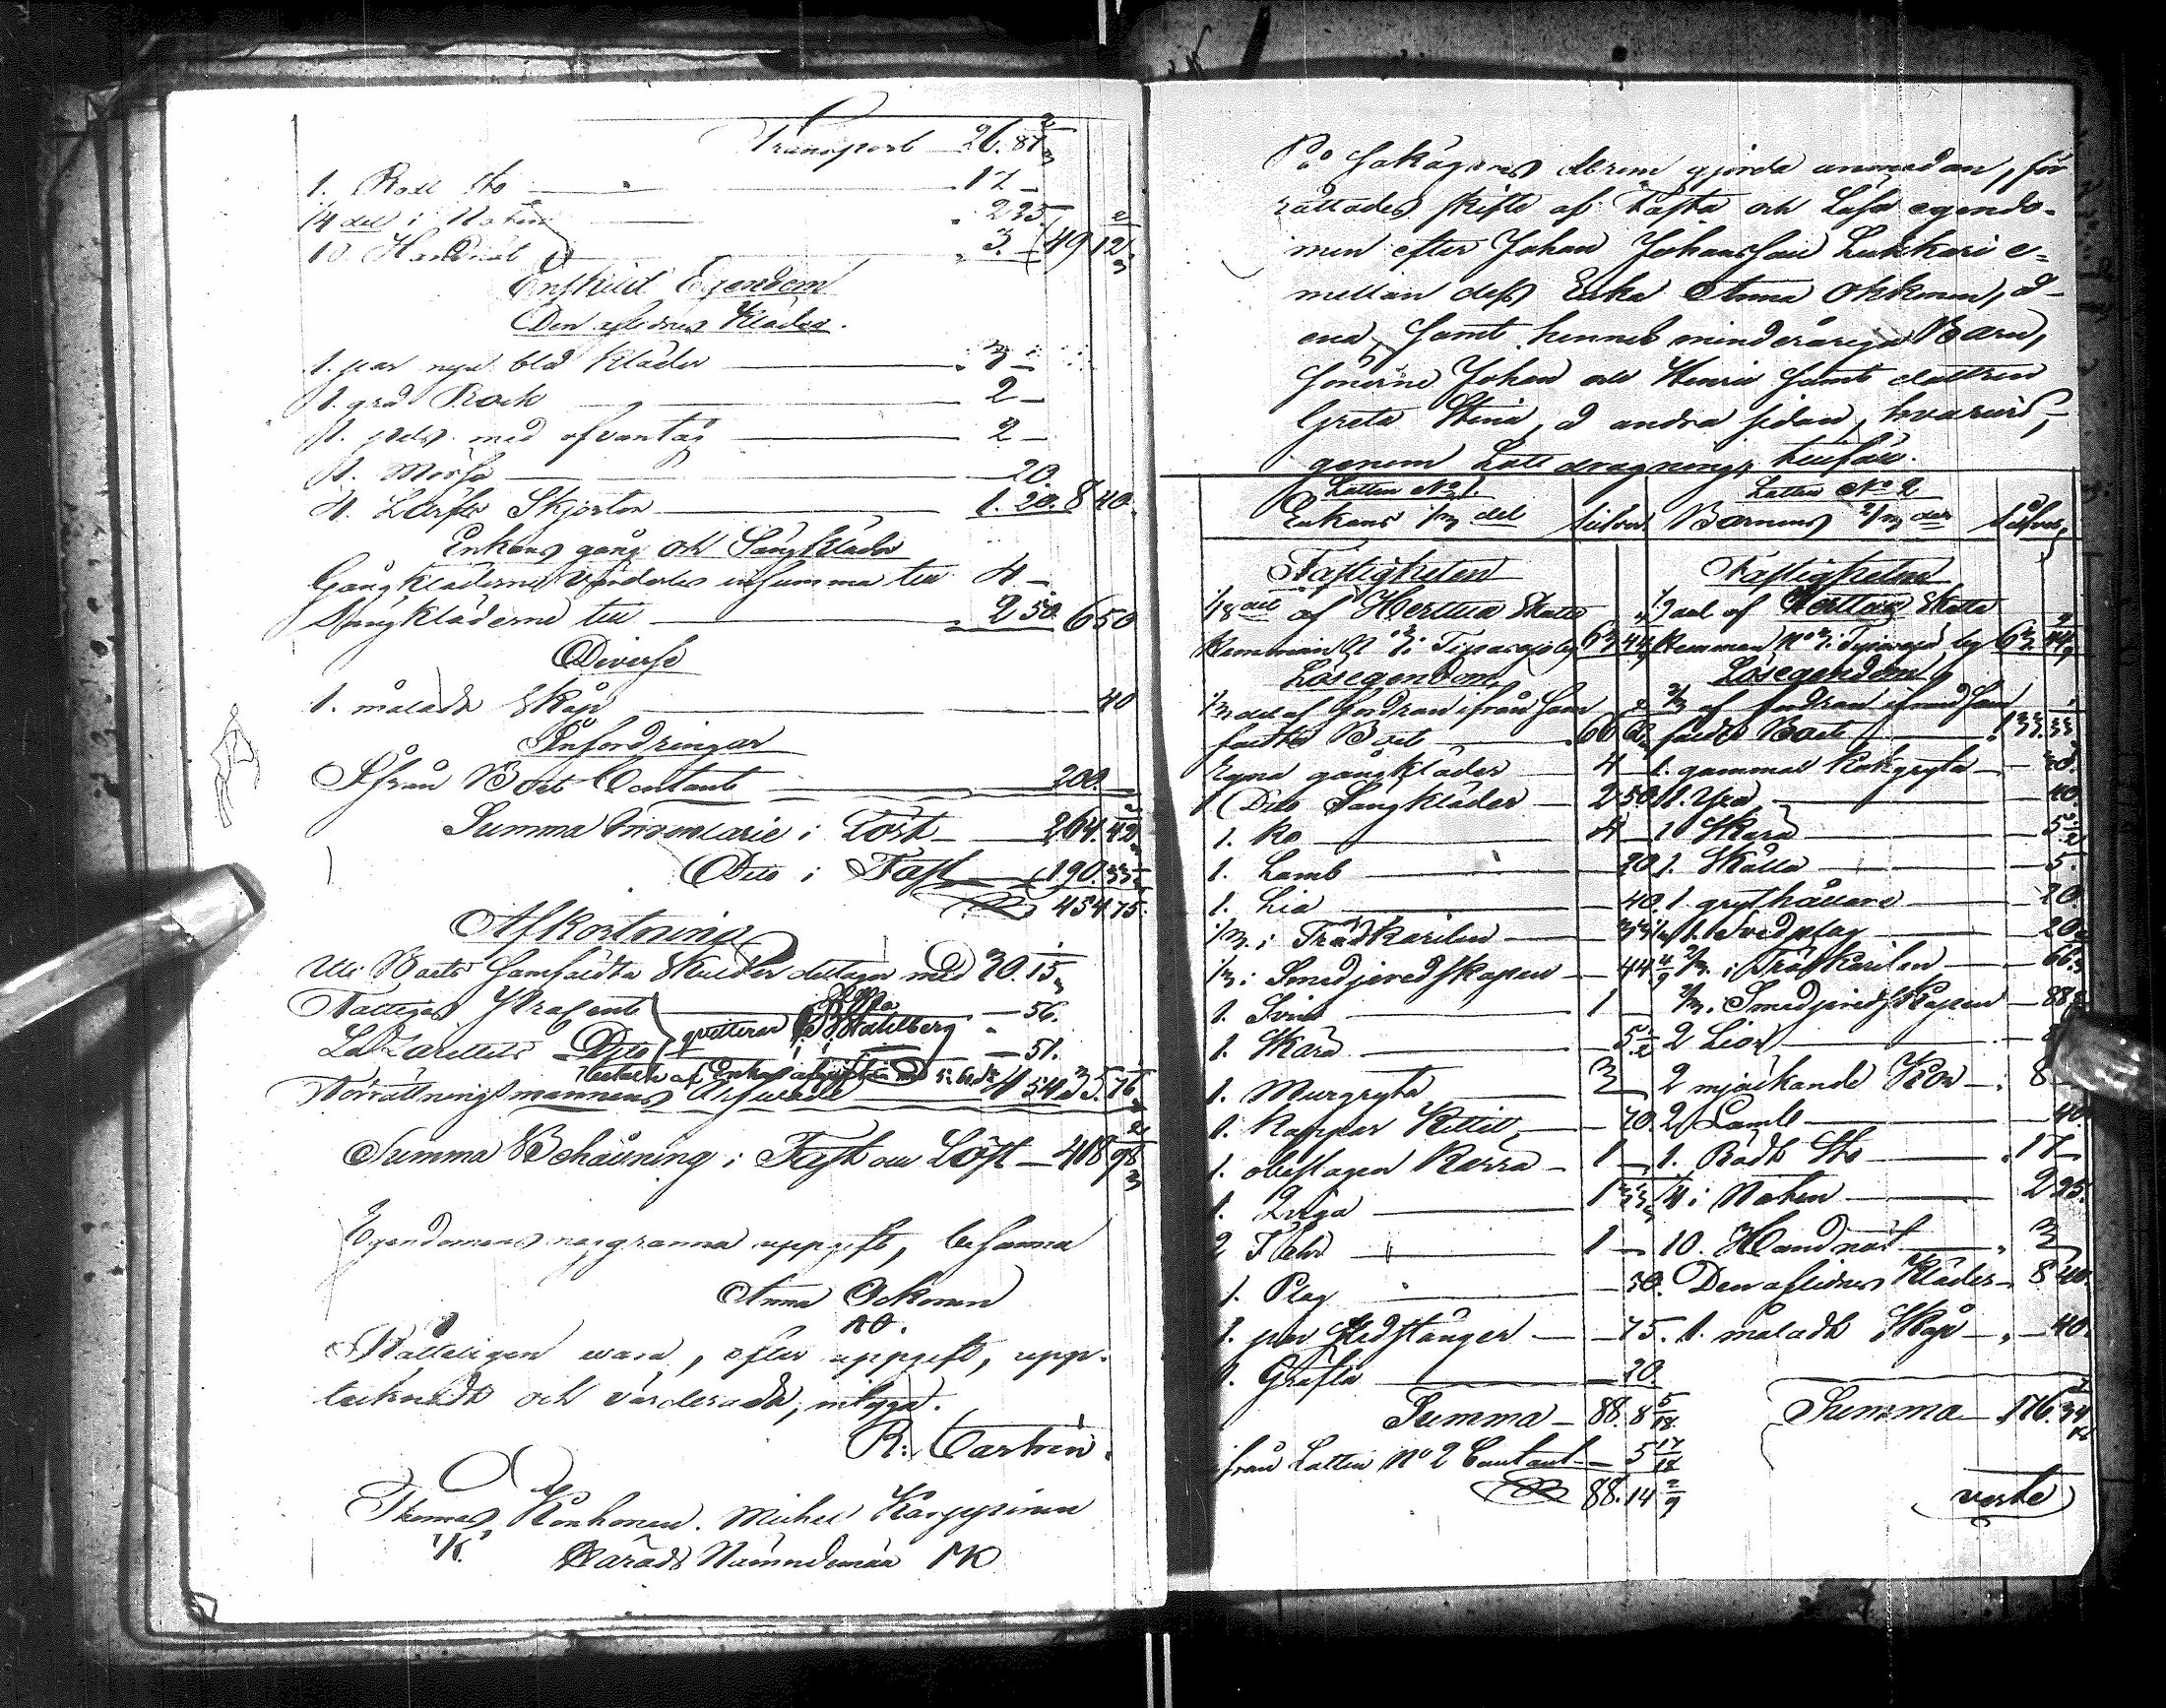 Transport — 26. 87 2/3
1. Rödt Sto — 17 —
1/4 del i Noten — 2 25.
10. Handnät — 3. — 49 12 2/3
Enskild Egendom
Den aflidnes Kläder.
1. par nya blå Kläder — 3 —
1. grå Rock — 2 —
1. pels med ofvantåg — 2 —
1. Mössa — 20.
4. Lärfts Skjortor — 1. 20. 8 40.
Enkans gång och Sängkläder
Gångkläderne värderades insumma till 4 —
Sängkläderne till — 2 50. 6 50
Diverse
1. måladt Skåp — 40
Infordringar
Ifrån Boet Contant — 200.
Summa Inventarie i Löst — 264. 42
Dito i Fast — 190. 33
454 75.
Afkortning
Uti Boets samfäldta Skulder deltager med 30. 15
Fattiges Procent — 56.
qvitteras Wahlberg
Lazaretts Dito — 51.
Förrättningsmannens Arfvode — 4 54 35. 76
Summa Behållning i Fast och Löst — 418 98 2/3
Egendomens noggranna uppgift, besanna
Anna Ockonen
AO.
Rätteligen vara, efter uppgift, upp-
tecknadt och värderadt, intyga.
R: Castrén.
Thomas Konhonen. Michel Karppinen
TK Härads Nämndeman MK
På Sakägarnes derom gjorda anmodan, för-
rättades skifte af Fasta och Lösa egendo-
men efter Johan Johansson Lukkari e-
mellan dess Enka Anna Okkonen, å
ena, samt hennes minderåriga Barn,
Sönerne Johan och Henric samt dottren
Greta Stina, å andra sidan, hvarvid,
genom Lottdragning, tillföll.
Lotten No 1. Lotten No 2
Enkans 1/3 del Silfver. Barnens 2/3 del Silfver,
Fastigheten Fastigheten
1/18 del af Herttua Skatte 1/9 del af Herttua Skatte
Hemman No 3 i Tiparasjö by 63 44 Hemman No 3 i Tiparasjö by 63. 44
Lösegendom Lösegendom
1/3 del af fordran ifrån sam- 2/3 af fordran ifrån sam-
fäldta Boet — 66 66 fäldta Boet — 133 33
Egna gångkläder — 4 — 1. gammal Kokgryta — 30.
Dito Sängkläder — 2 50 1. Yxa — 40.
1. Ko — 4 — 1 Skära — 5 1/2
1. Lamb — 20 1. Skålla — 5.
1. Lia — 40. 1. grythållare — 20.
1/3 i Trädkärilen — 33 1/3 1. Svedplog — 20
1/3 i Smedjeredskapen — 44 4/9 2/3 i Trädkärilen — 66
1. Svin — 1 2/3 i Smedjeredskapen — 88
1. Skära — 5 1/2 2 Lior —
1. Murgryta — 3 — 2 mjölkande Kor — 8
1. Koppar Kittil — 70. 2 Lamb — 40.
1. obeslagen Kärra — 1 — 1. Rödt Sto — 17 —
1. Qviga — 1 33 1/3 1/4 i Noten — 2 25.
2 Får — 1 — 10. Handnät — 3
1. Plog — 50. Den aflidnes Kläder — 8 40.
1. par Stedstänger — 75. 1. måladt Skåp — 40.
1. Gräfta — 20.
Summa — 88. 8 5/18. Summa — 176. 34
från Lotten No 2 Contant — 5 17/18
88. 14 2/9
verte